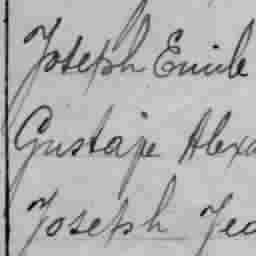 Joseph Emile
Gustave Alexa
Joseph Jea